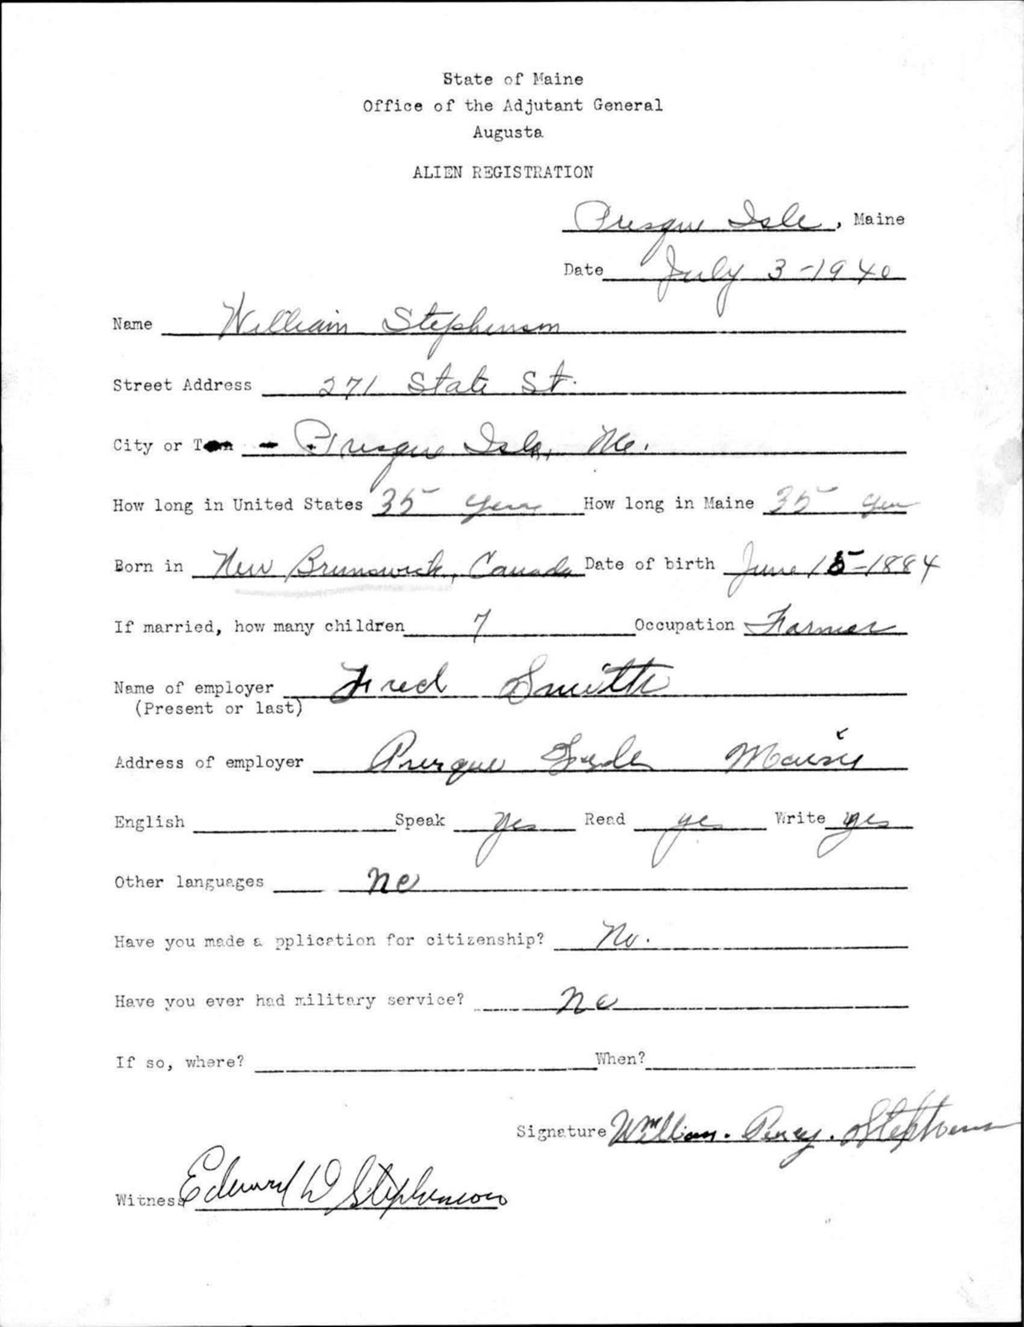 State of Maine
Office of the Adjutant General
Augusta
ALIEN REGISTRATION
Presque Isle, Maine
Date July 3-1940
Name William Stephenson
Street Address 271 State St.
City or Town - Presque Isle, Me.
How long in United States 35 years How long in Maine 35 years
Born in New Brunswick, Canada Date of birth June 15-1884
If married, how many children 7 Occupation Farmer
Name of employer Fred Smith
(Present or last)
Address of employer Presque Isle Maine
English Speak Yes Read yes Write yes
Other languages no
Have you made a pplication for citizenship? No.
Have you ever had military service? no
If so, where? When?
Signature William. Percy. Stephenson
Witness Edward D Stephenson